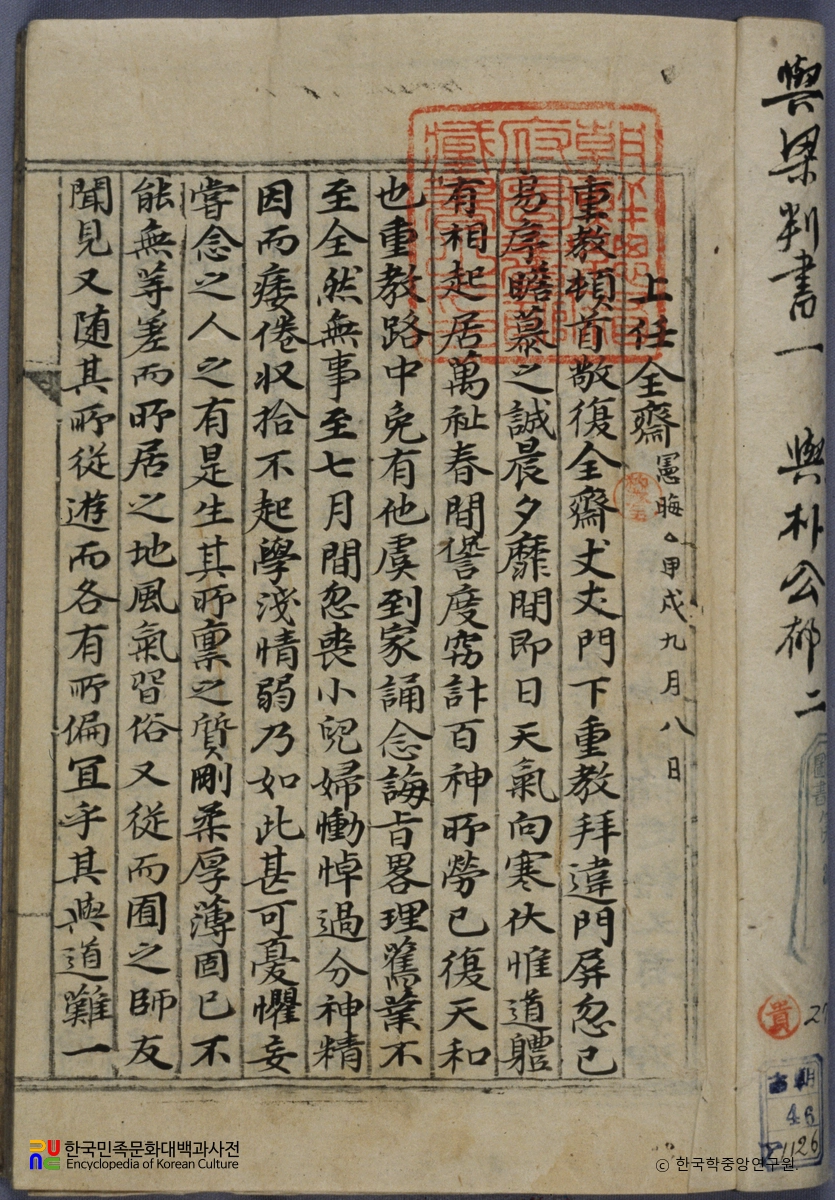 與梁判書一 與朴公郁二
上任全齋憲晦 甲戌九月八日
重教頓首敬復全齋丈丈門下重教拜違門屛忽已
易序瞻慕之誠晨夕靡間即日天氣向寒伏惟道軆
有相起居萬祉春間愆度窃計百神所勞已復天和
也重教路中免有他虞到家誦念誨旨畧理舊葉不
至全然無事至七月間忽喪小兒婦慟悼過分神精
因而痿倦収拾不起學淺情弱乃如此甚可憂懼妄
嘗念之人之有是生其所禀之質剛柔厚薄固已不
能無等差而所居之地風氣習俗又從而囿之師友
聞見又随其所從遊而各有所偏冝乎其與道難一
貴
朝
46
한국민족문화대백과사전
Encyclopedia of Korean Culture
ⓒ 한국학중앙연구원